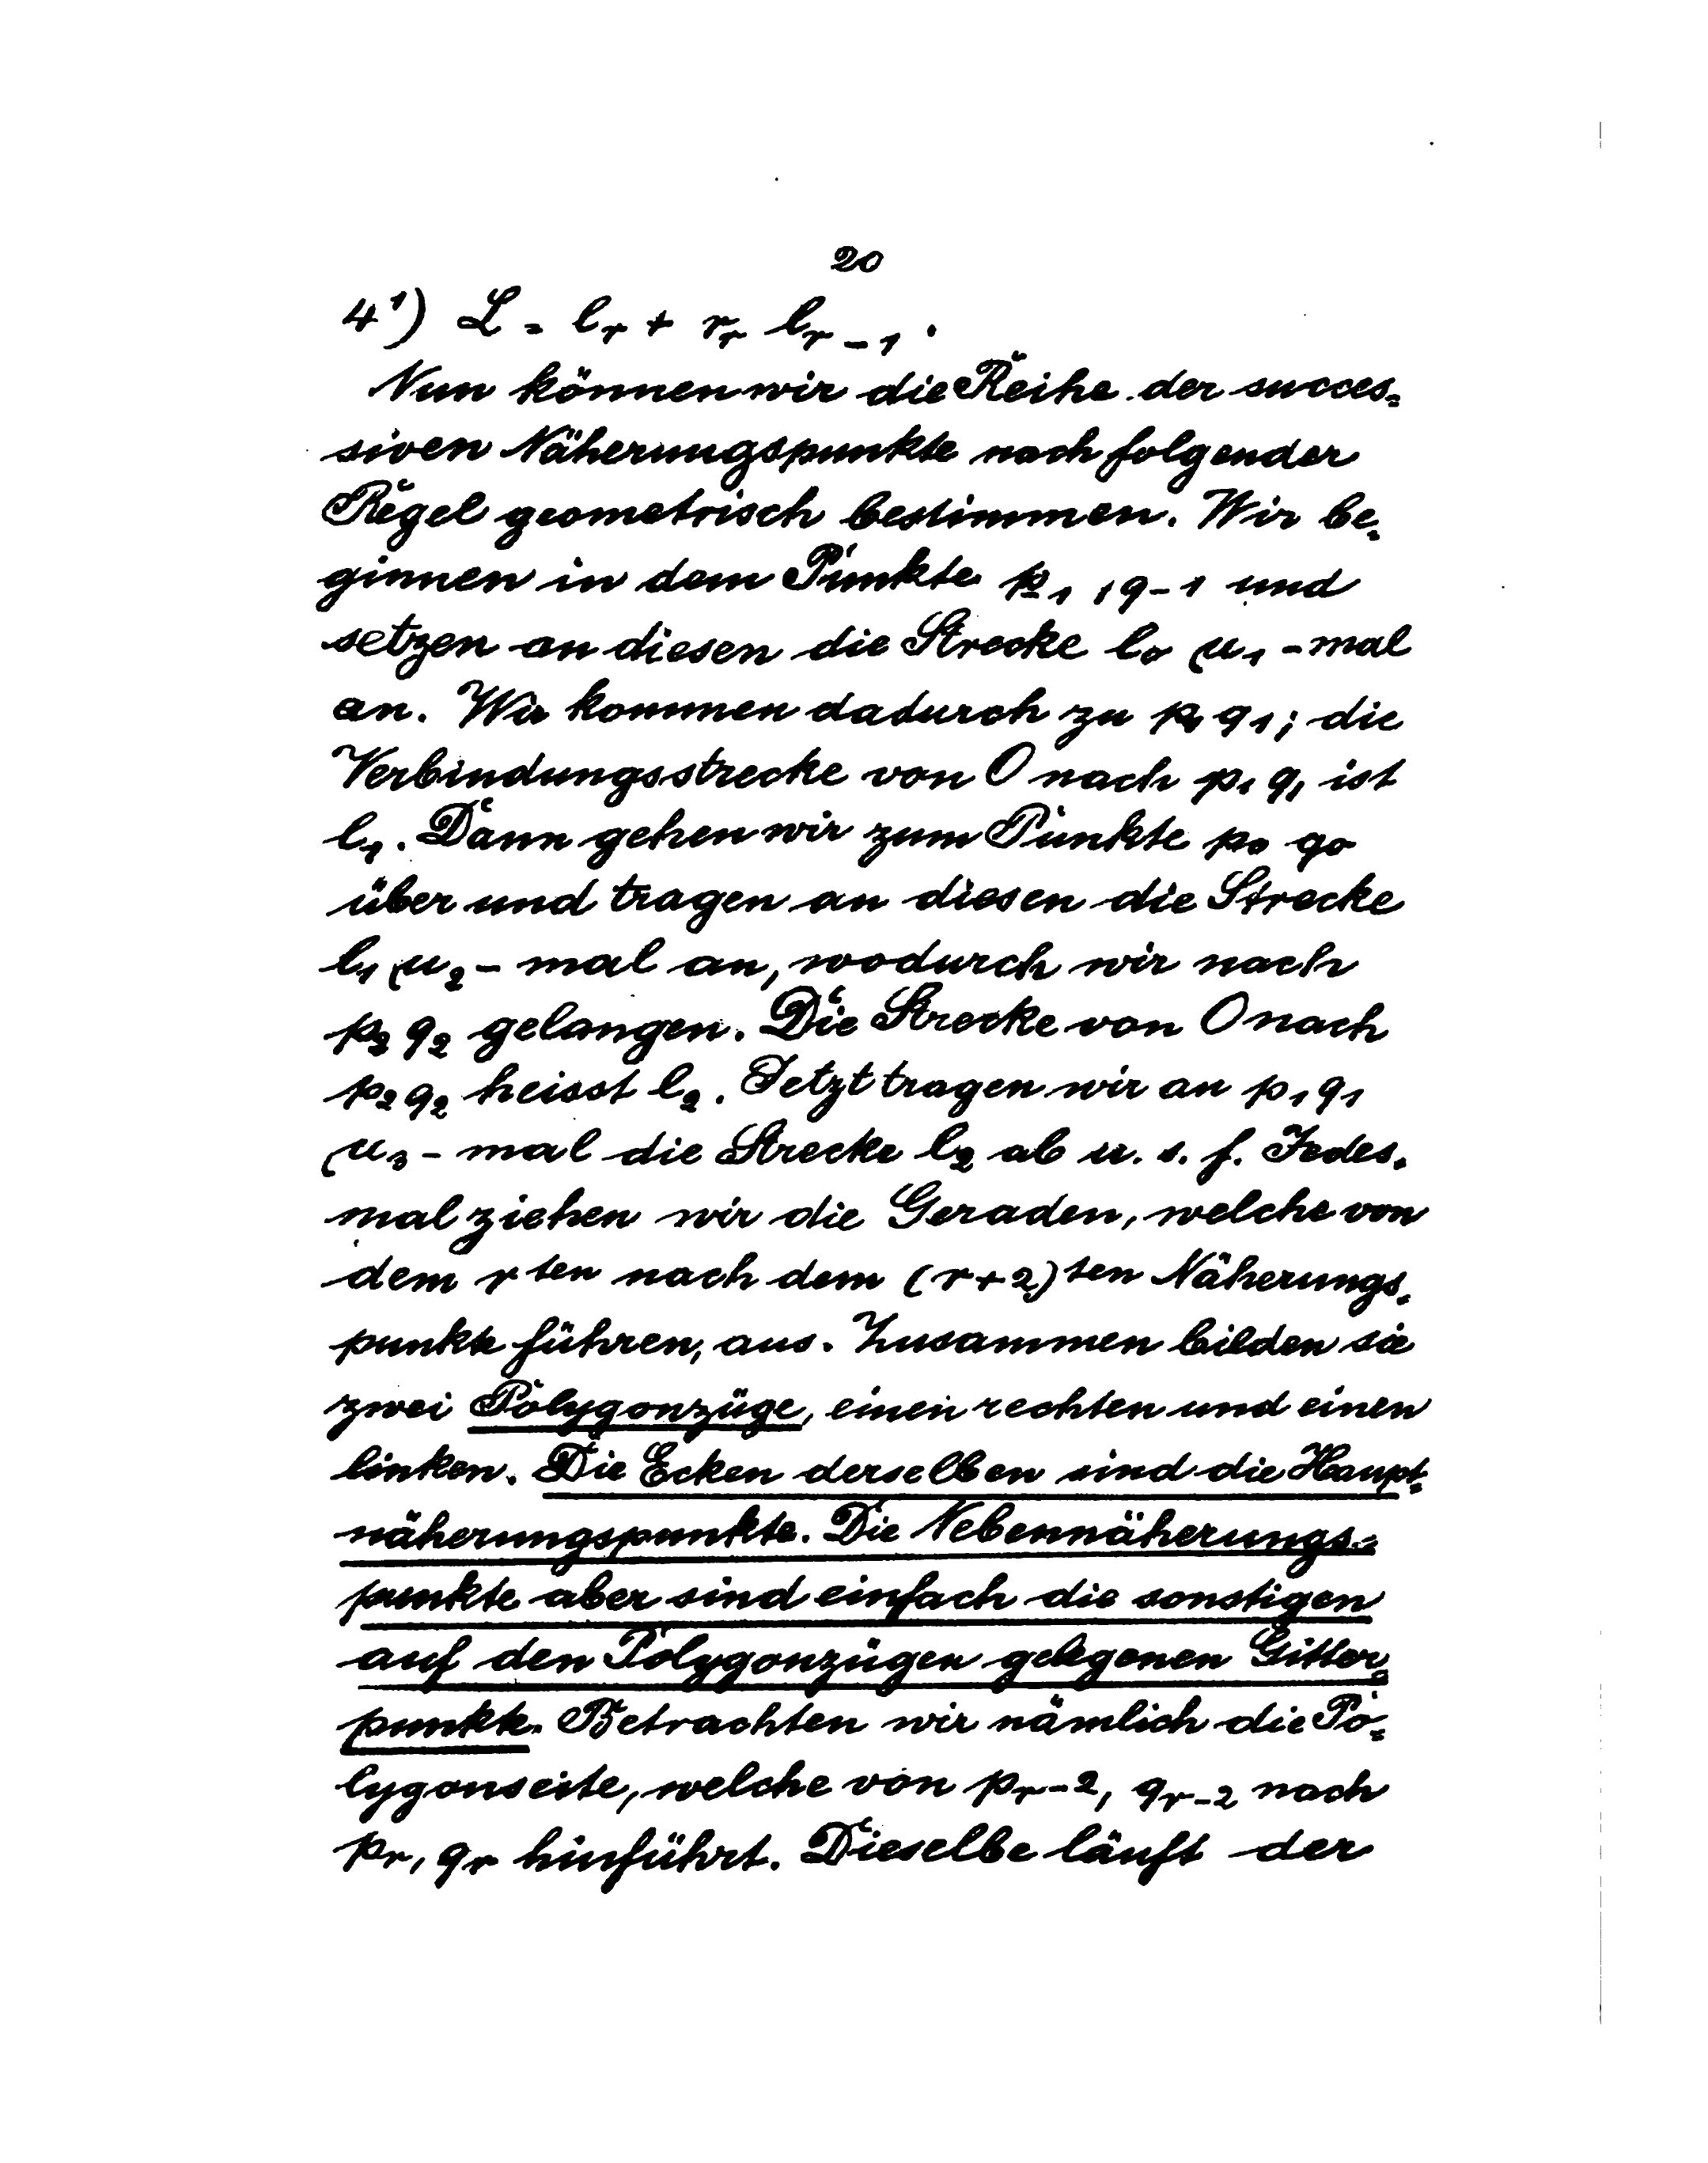 20
4') L = l_r + r_r l_{r-1}.
Nun können wir die Reihe der succes=
siven Näherungspunkte nach folgender
Regel geometrisch bestimmen. Wir be=
ginnen in dem Punkte p_{-1}, q_{-1} und
setzen an diesen die Strecke l_0 μ_1-mal
an. Wir kommen dadurch zu p_1 q_1; die
Verbindungsstrecke von O nach p_1 q_1 ist
l_1. Dann gehen wir zum Punkte p_0 q_0
über und tragen an diesen die Strecke
l_1 μ_2-mal an, wodurch wir nach
p_2 q_2 gelangen. Die Strecke von O nach
p_2 q_2 heisst l_2. Jetzt tragen wir an p_1 q_1
μ_3-mal die Strecke l_2 ab u. s. f. Jedes=
mal ziehen wir die Geraden, welche von
dem r^{ten} nach dem (r+2)^{ten} Näherungs=
punkte führen, aus. Zusammen bilden sie
zwei Polygonzüge, einen rechten und einen
linken. Die Ecken derselben sind die Haupt=
näherungspunkte. Die Nebennäherungs=
punkte aber sind einfach die sonstigen
auf den Polygonzügen gelegenen Gitter=
punkte. Betrachten wir nämlich die Po=
lygonseite, welche von p_{r-2}, q_{r-2} nach
p_r, q_r hinführt. Dieselbe läuft der